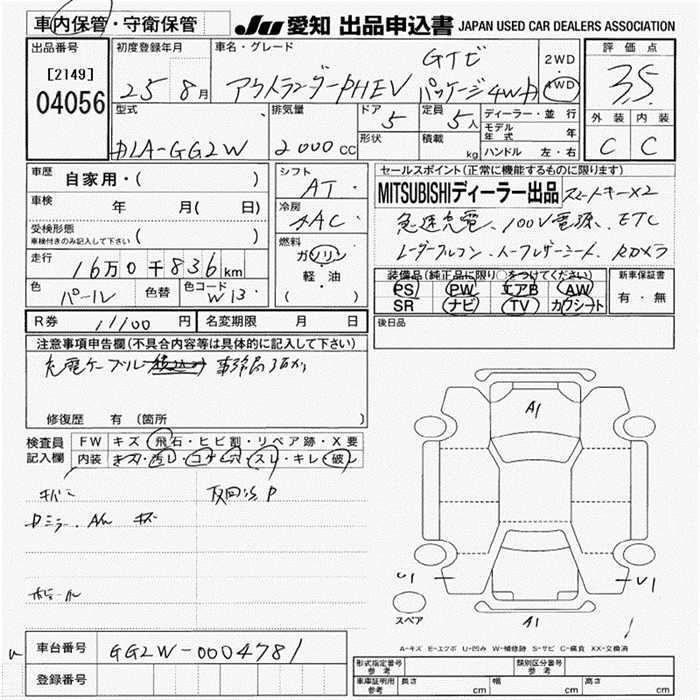 車内保管・守衛保管
JU 愛知 出品申込書 JAPAN USED CAR DEALERS ASSOCIATION
出品番号
[2149]
04056
初度登録年月
25 8月
車名・グレード
アウトランダーPHEV
GTビ
パッケージ4WD
2WD
4WD
評価点
3.5
外装 内装
C C
型式
DLA-GG2W
排気量
2000cc
ドア 5
形状
定員 5人
積載 kg
ディーラー・並行
モデル年式 年
ハンドル 左・右
車歴 自家用・( )
車検 年 月( 日)
受検形態
車検付きのみ記入して下さい ( )
走行
16万0千836km
色
パール
色替
色コード
W13
シフト
AT
冷房
AAC
燃料
ガソリン
軽・油
( )
セールスポイント(正常に機能するものに限ります)
MITSUBISHIディーラー出品 スマートキー×2
急速充電、100V電源、ETC
レーダークルコン、ハーフレザーシート、Rカメラ
装備品(純正品に限り○をつけてください)
PS PW エアB AW
SR ナビ TV カワシート
新車保証書
有・無
後日品
R券 11100円 名変期限 月 日
注意事項申告欄(不具合内容等は具体的に記入して下さい)
充電ケーブル 事務局お預り
修復歴 有 (箇所 )
検査員記入欄
FW キズ・飛石・ヒビ割・リペア跡・X要
内装 キズ・汚レ・コゲ・穴・スレ・キレ・破レ
A1
U1
U1
A1
スペア
A-キズ E-エクボ U-凹み W-補修跡 S-サビ C-腐食 XX-交換済
車台番号 GG2W-0004781
登録番号
形式指定番号 参考
類別区分番号 参考
車庫証明用 参考 長さ cm 幅 cm 高さ cm